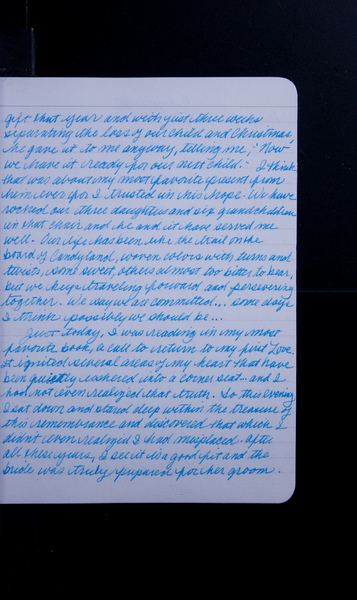 gift that year and with just three weeks
separating the loss of our child and Christmas
he gave it to me anyway, telling me, "Now
we have it ready for our next child." I think
that was about my most favorite present from
him ever for I trusted in his hope. We have
rocked our three daughters and six grandchildren
in that chair and he and it have served me
well. Our life has been like the trail on the
board of Candyland, woven colors with turns and
twists, some sweet, others almost too bitter to bear,
but we keep traveling forward and persevering
together. We say we are committed... some days
I think possibly we should be...
Just today, I was reading in my most
favorite book, a call to return to my first Love.
It ignited several areas of my heart that have
been quietly ushered into a corner seat... and I
had not even realized that truth. So this evening
I sat down and stand deep within the treasure of
this remembrance and discovered that which I
didn't even realized I had misplaced. After
all these years, I see it is a good fit and the
bride was truly prepared for her groom.